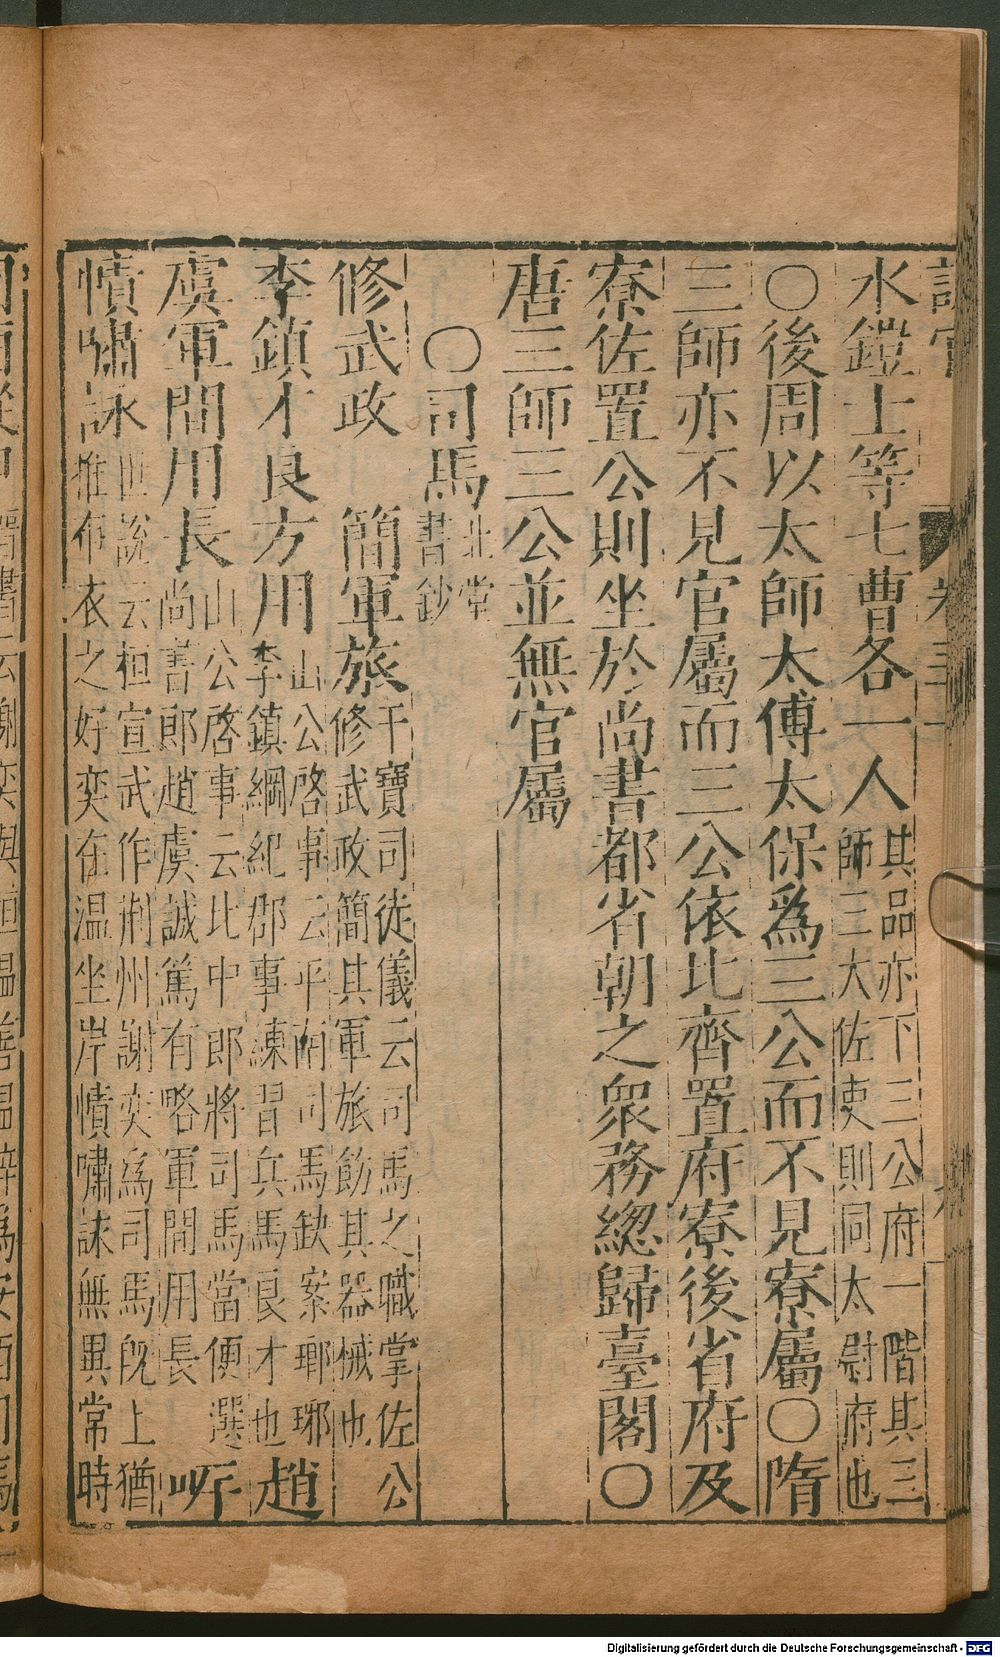 水鏜士等七曹各一人其品亦下三公府一階其三師三大佐吏則同太尉府也
〇後周以太師太傅太保爲三公而不見寮屬〇隋
三師亦不見官屬而三公依北齊置府寮後省府及
寮佐置公則坐於尚書都省朝之衆務總歸臺閣〇
唐三師三公並無官屬
〇司馬北堂書鈔
修武政 簡軍旅干寶司徒儀云司馬之職掌佐公修武政簡其軍旅飭其器械也
李鎮才良方用山公啓事云平南司馬缺案瑯琊李鎮綱紀郡事練習兵馬良才也 趙
虞軍間用長山公啓事云北中郎將司馬當便選尚書郎趙虞誠篤有略軍間用長 岸
幘嘯詠世說云桓宣武作荊州謝奕爲司馬旣上猶推布衣之好奕在温坐岸幘嘯詠無異常時
Digitalisierung gefördert durch die Deutsche Forschungsgemeinschaft - DFG